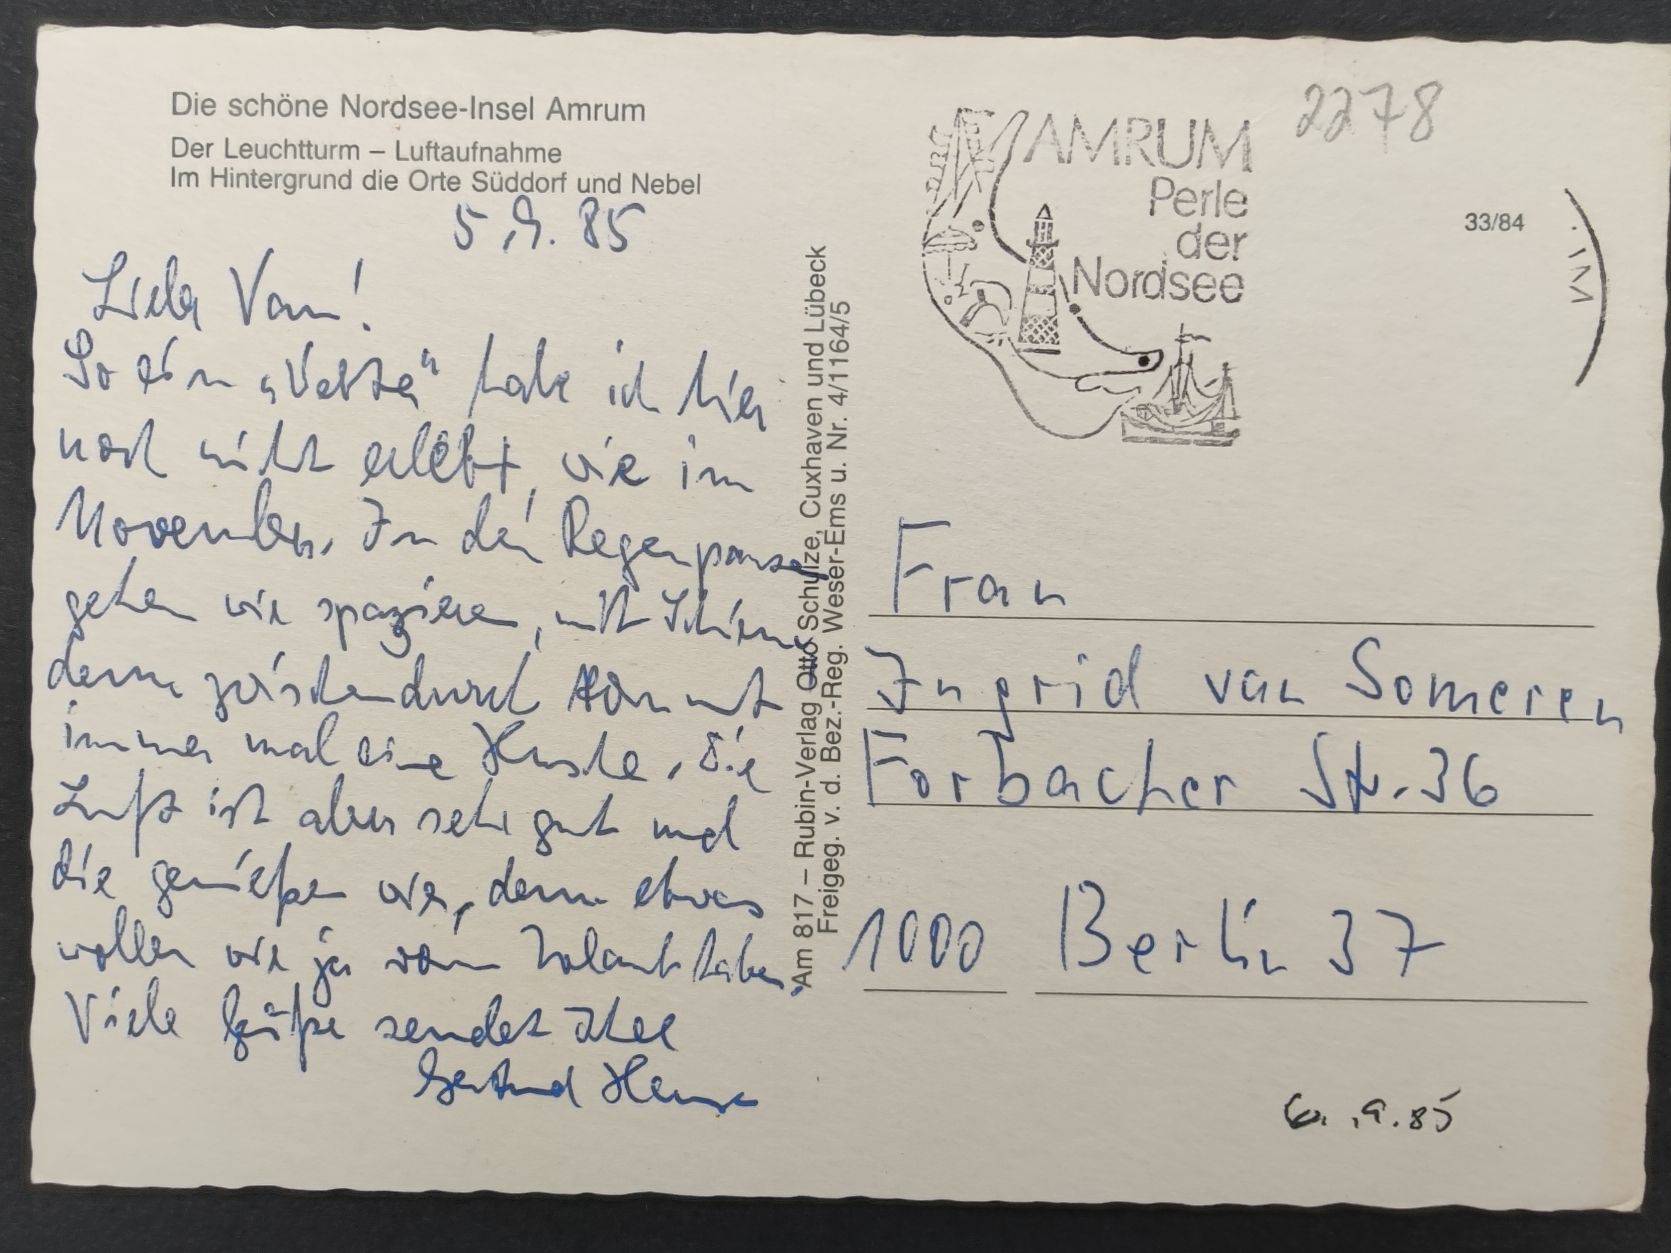 Die schöne Nordsee-Insel Amrum
Der Leuchtturm – Luftaufnahme
Im Hintergrund die Orte Süddorf und Nebel
5.9.85
Liebe Van!
So ein „Wetter“ habe ich hier
noch nicht erlebt, wie im
November. In den Regenpausen
gehen wir spazieren, mit Schirm
denn zwischendurch kommt
immer mal eine Husche, die
Luft ist aber sehr gut und
die genießen wir, denn etwas
wollen wir ja vom Urlaub haben.
Viele Grüße sendet Ihre
Gertrud
Am 817 – Rubin-Verlag Otto Schulze, Cuxhaven und Lübeck
Freigeg. v. d. Bez.-Reg. Weser-Ems u. Nr. 4/1164/5
AMRUM
Perle
der
Nordsee
2278
33/84
Frau
Ingrid van Someren
Forbacher Str. 36
1000 Berlin 37
.9.85